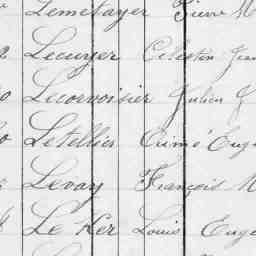 Lemetayer Pierre M
Lecuyer Célestin Jean
Lecorvoisier Julien J
Letellier Aimé Eug
Levay François M
Le Ker Louis Euge